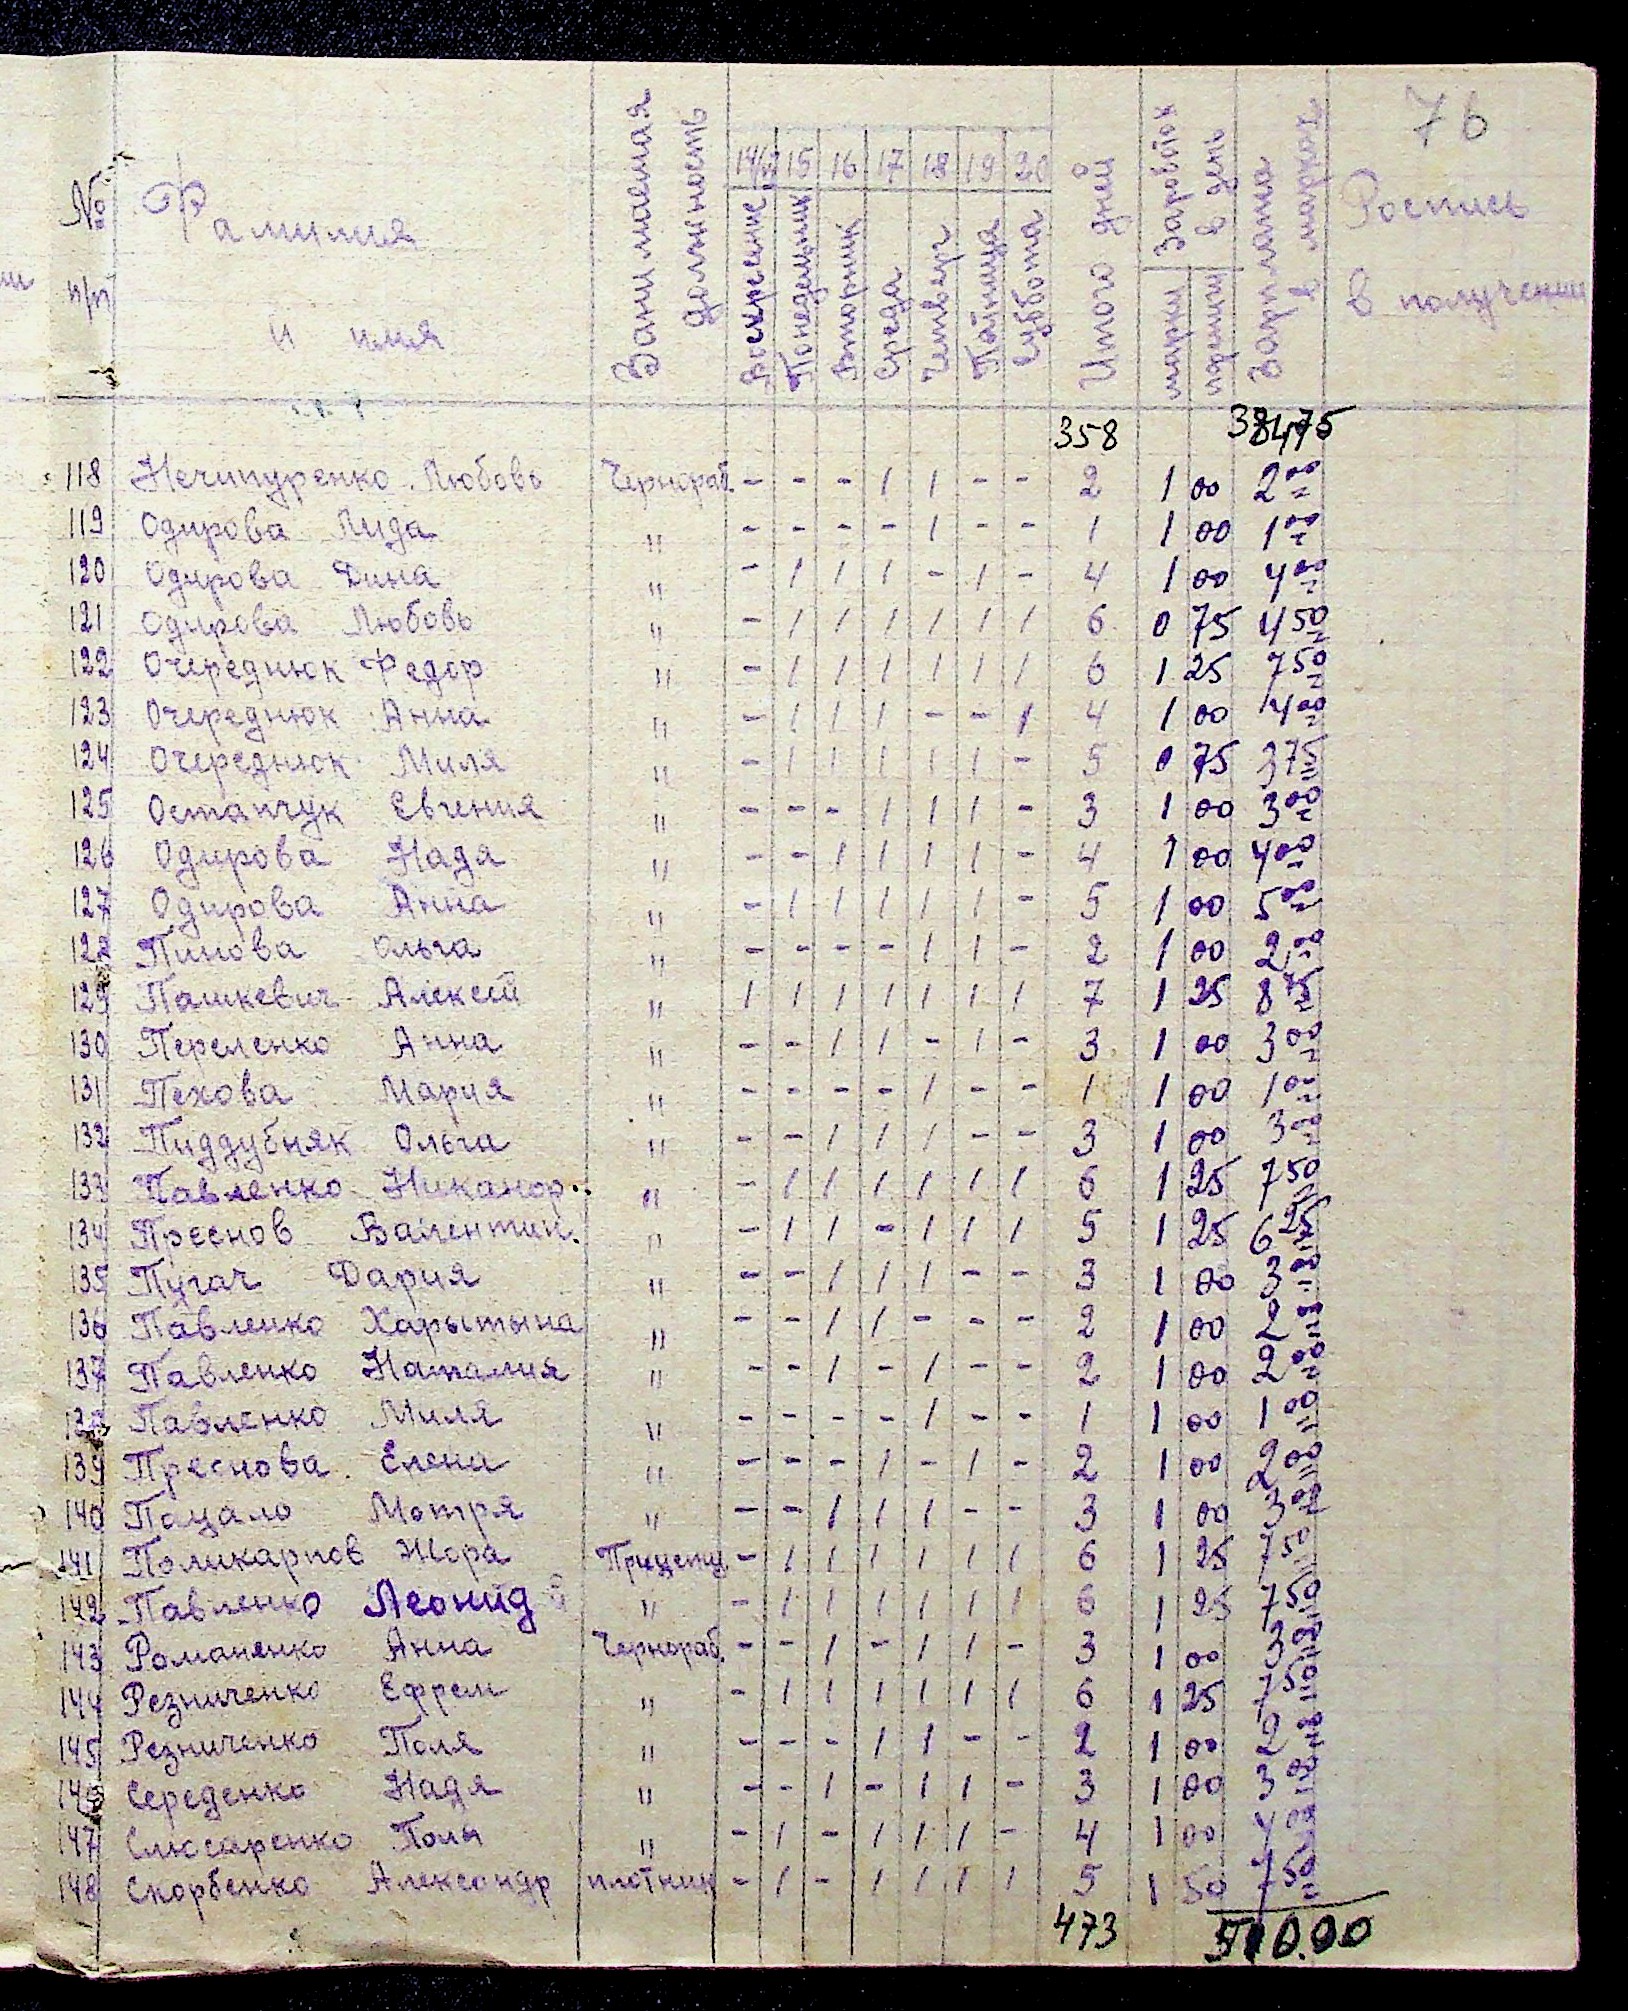 76
№ п/п Фамилия и имя Занимаемая должность 14/IV Воскресение 15 Понедельник 16 Вторник 17 Среда 18 Четверг 19 Пятница 20 Суббота Итого дней Заработок в день марки пфениги Зарплата в марках Роспись в получении
358 384,75
118 Нечипуренко Любовь Чернораб. - - - 1 1 - - 2 1 00 2 00
119 Одирова Лида " - - - - 1 - - 1 1 00 1 00
120 Одирова Дина " - 1 1 1 - 1 - 4 1 00 4 00
121 Одирова Любовь " - 1 1 1 1 1 1 6 0 75 4 50
122 Очереднюк Федор " - 1 1 1 1 1 1 6 1 25 7 50
123 Очереднюк Анна " - 1 1 1 - - 1 4 1 00 4 00
124 Очереднюк Миля " - 1 1 1 1 1 - 5 0 75 3 75
125 Остапчук Евгения " - - - 1 1 1 - 3 1 00 3 00
126 Одирова Надя " - - 1 1 1 1 - 4 1 00 4 00
127 Одирова Анна " - 1 1 1 1 1 - 5 1 00 5 00
128 Пинова Ольга " - - - - 1 1 - 2 1 00 2 00
129 Пашкевич Алексей " 1 1 1 1 1 1 1 7 1 25 8 75
130 Переленко Анна " - - 1 1 - 1 - 3 1 00 3 00
131 Пехова Мария " - - - - 1 - - 1 1 00 1 00
132 Пиддубняк Ольга " - - 1 1 1 - - 3 1 00 3 00
133 Павленко Никанор. " - 1 1 1 1 1 1 6 1 25 7 50
134 Преснов Валентин. " - 1 1 - 1 1 1 5 1 25 6 25
135 Пугач Дария " - - 1 1 1 - - 3 1 00 3 00
136 Павленко Харытына " - - 1 1 - - - 2 1 00 2 00
137 Павленко Наталия " - - 1 - 1 - - 2 1 00 2 00
138 Павленко Миля " - - - - 1 - - 1 1 00 1 00
139 Преснова Елена " - - - 1 - 1 - 2 1 00 2 00
140 Пацало Мотря " - - 1 1 1 - - 3 1 00 3 00
141 Поликарпов Жора Прицепщ. - 1 1 1 1 1 1 6 1 25 7 50
142 Павленко Леонид " - 1 1 1 1 1 1 6 1 25 7 50
143 Романенко Анна Чернораб. - - 1 - 1 1 - 3 1 00 3 00
144 Резниченко Ефрем " - 1 1 1 1 1 1 6 1 25 7 50
145 Резниченко Поля " - - - 1 1 - - 2 1 00 2 00
146 Середенко Надя " - - 1 - 1 1 - 3 1 00 3 00
147 Слюсаренко Поля " - 1 - 1 1 1 - 4 1 00 4 00
148 Скорбенко Александр плотник - 1 - 1 1 1 1 5 1 50 7 50
473 510.00